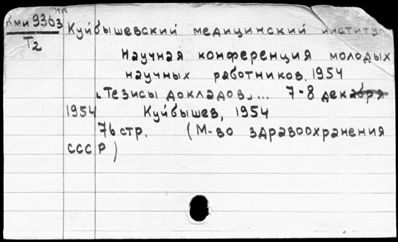 Кми 9363
Т2
Куйбышевский медицинский институт
Научная конференция молодых
научных работников. 1954
„Тезисы докладов„... 7-8 декабря
1954 Куйбышев, 1954
76 стр. (М-во здравоохранения
СССР)